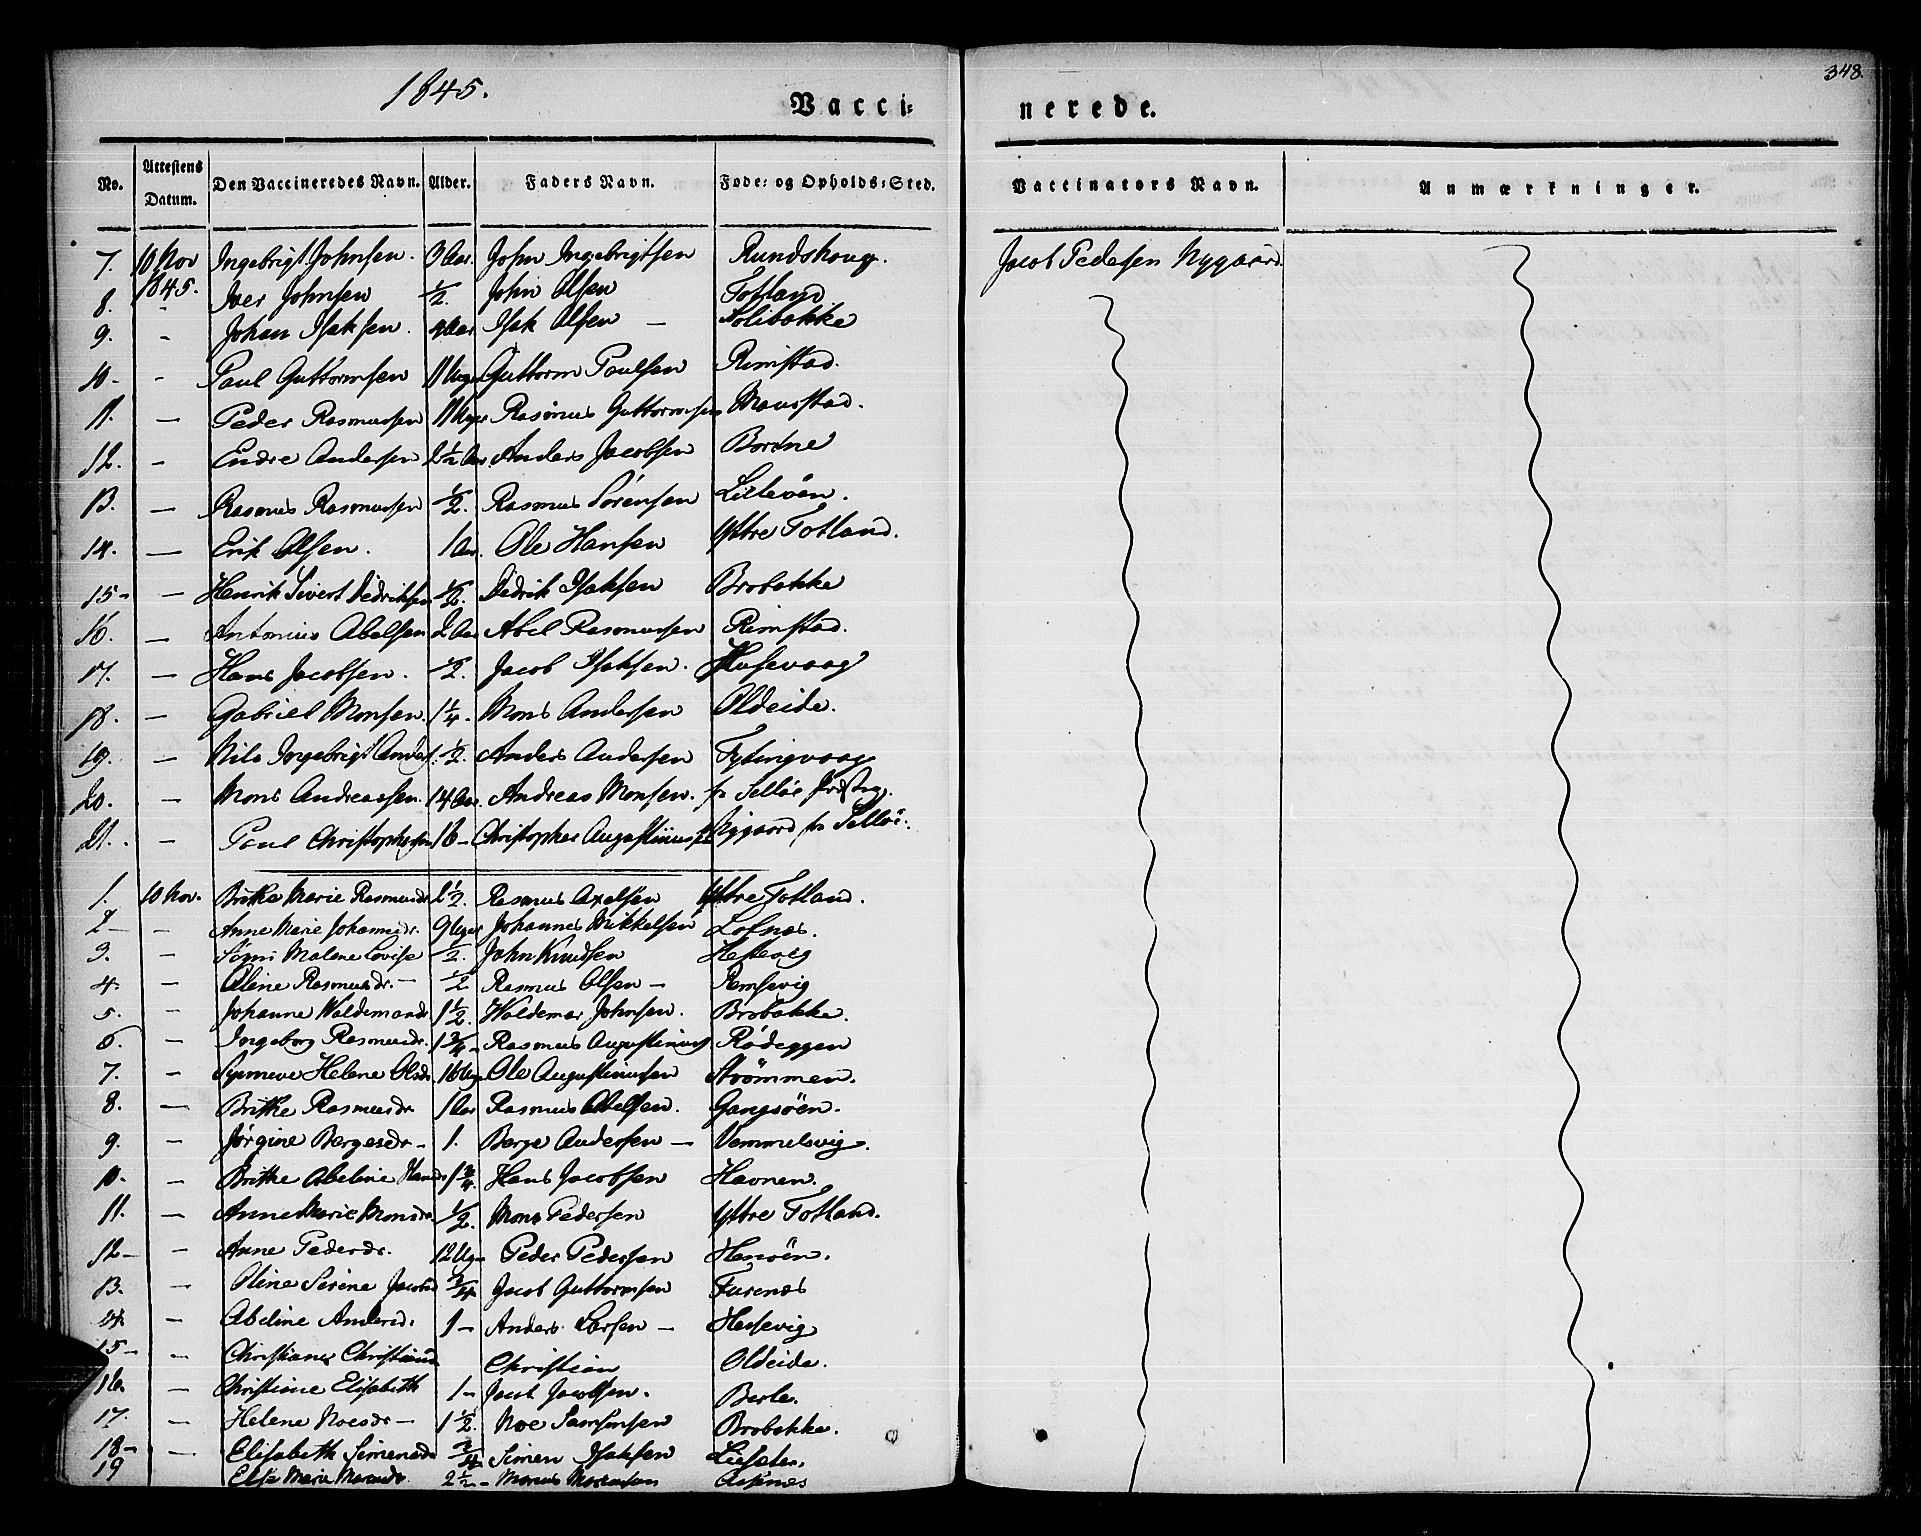 1845.
348.
Vacci=
nerede.
No. Attestens Datum. Den Vaccineredes Navn. Alder. Faders Navn. Føde= og Opholds=Sted. Vaccinators Navn. Anmærkninger.
7. 10 Nov 1845. Ingebrigt Johnsen. 3 Aar. John Ingebrigtsen Rundshoug. Jacob Pedersen Nygaard.
8. - Iver Johnsen 1/2. John Olsen Totland
9. - Johan Isaksen. Aar Isak Olsen —
10 - - Paul Guttormsen 11 Uger Guttorm Paulsen Rimstad.
11. — Peder Rasmussen 11 Uger Rasmus Guttormsen Maurstad.
12. - Endre Andersen 2 1/2 Aar. Anders Jacobsen Bortne
13. — Rasmus Rasmussen 1/2. Rasmus Sörensen Lilleöen.
14. — Erik Olsen. 1 Aar. Ole Hansen Yttre Totland.
15 - — Henrik Sivert Didriksen 1/2. Didrik Isaksen Brobakke
16. — Antonius Abelsen 2 Aar Abel Rasmussen Rimstad.
17. — Hans Jacobsen. 1/2. Jacob Isaksen. Husevaag
18. — Gabriel Monsen. 1 1/4. Mons Andersen Oldeide.
19. — Nils Ingebrigt Anders. 1/2. Anders Andersen
20. — Mons Andreassen. 14 Aar Andreas Monsen. fr Selløe
21. - Paul Christophersen 16 - Christopher Augustinussen Nygaard fr Selløe.
1. 10 Nov. Brithe Marie Rasmusdr. 2 1/2. Rasmus Axelsen Yttre Totland.
2 - - Anne Marie Johannesdr. 9 Uger Johannes Mikkelsen Lofnæs.
3. - Malene Lovise 1/2. John Knudsen
4. - Oline Rasmusdr. — 1/2 Rasmus Olsen —
5. - Johanne Waldemarsdr 1 1/2. Waldemar Johnsen. Brobakke.
6. - Ingeborg Rasmusdr. 1 3/4 - Rasmus Augustinus Rödeggen
7. - Synneve Helene Olsdr. 16 Uger Ole Augustinusen Strömmen.
8. — Brithe Rasmusdr 1 Aar Rasmus Abelsen. Gangsöen.
9. - Jörgine Bergesdr - 1. Berge Andersen — Vemmelsvig.
10. - Brithe Abeline Hansdr 1 3/4. Hans Jacobsen Havnen.
11. — Anne Marie Monsdr. 1/2. Mons Pedersen Yttre Totland.
12 - - Anne Pedersdr. 12 Uger Peder Pedersen Hennöen.
13. - Oline Serine Jacobsd 3/4 Jacob Guttormsen Furenæs
14. - Abeline Andersd. 1 - Anders Larsen — Hessevig
15 - - Christiane Christiansd Christian Oldeide.
16. - Christine Elisabeth 1 - Jacob Jacobsen. Berle.
17. - Helene Noesdr — 1 1/2. Noe Samsonsen Brobakke.
18 - — Elisabeth Simensdr 3/4 - Simen Isaksen
19 Marie 2 1/2 -